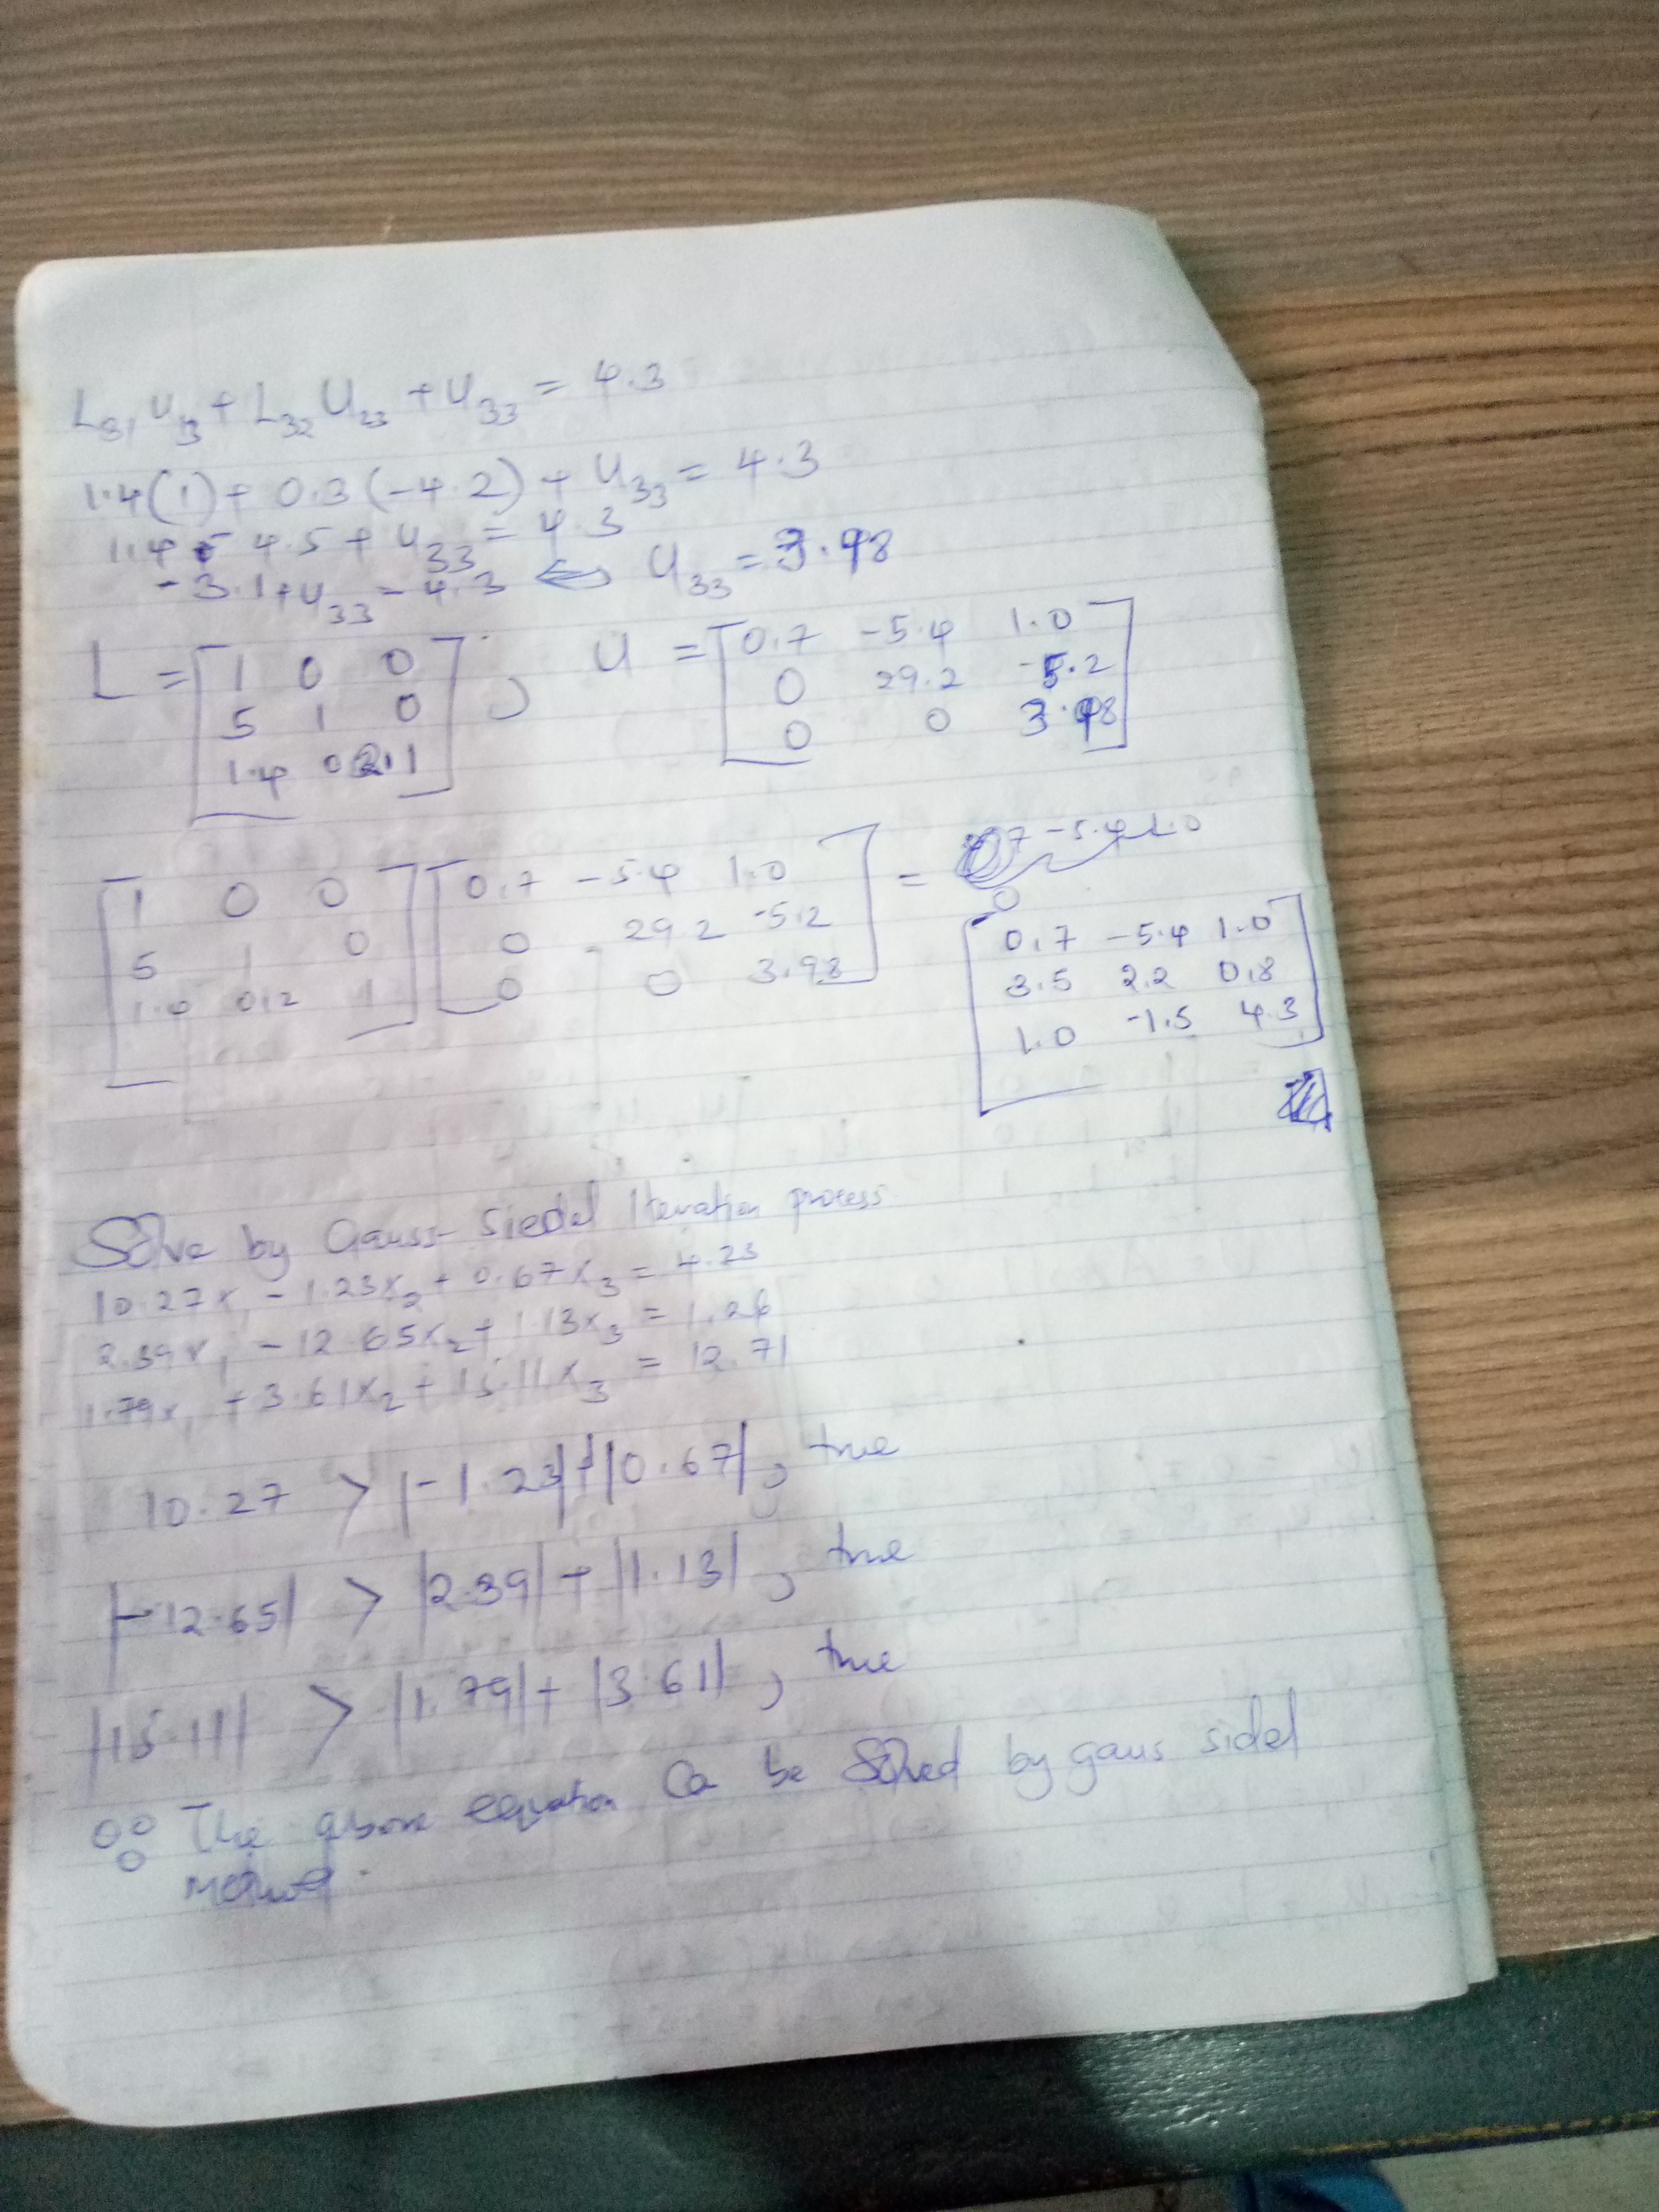 L31 U13 + L32 U23 + U33 = 4.3
1.4(1) + 0.3(-4.2) + U33 = 4.3
1.4 - 4.5 + U33 = 4.3
-3.1 + U33 = 4.3 ⇐ U33 = 3.98
L = [1 0 0 ; U = [0.7 -5.4 1.0
5 1 0 0 29.2 -5.2
1.4 0.2 1] 0 0 3.98]
7 -5.4 1.0
0
[1 0 0 [0.7 -5.4 1.0 = [0.7 -5.4 1.0
5 1 0 0 29.2 -5.2 3.5 2.2 0.8
1.4 0.2 1] 0 0 3.98] 1.0 -1.5 4.3]
Solve by Gauss-Siedel Iteration process
10.27x1 - 1.23x2 + 0.67x3 = 4.23
2.39x1 - 12.65x2 + 1.13x3 = 1.26
1.79x1 + 3.61x2 + 15.11x3 = 12.71
10.27 > |-1.23| + |0.67|, true
|-12.65| > |2.39| + |1.13|, true
|15.11| > |1.79| + |3.61|, true
∴ The above equation Ca be Solved by gaus sidel
method.